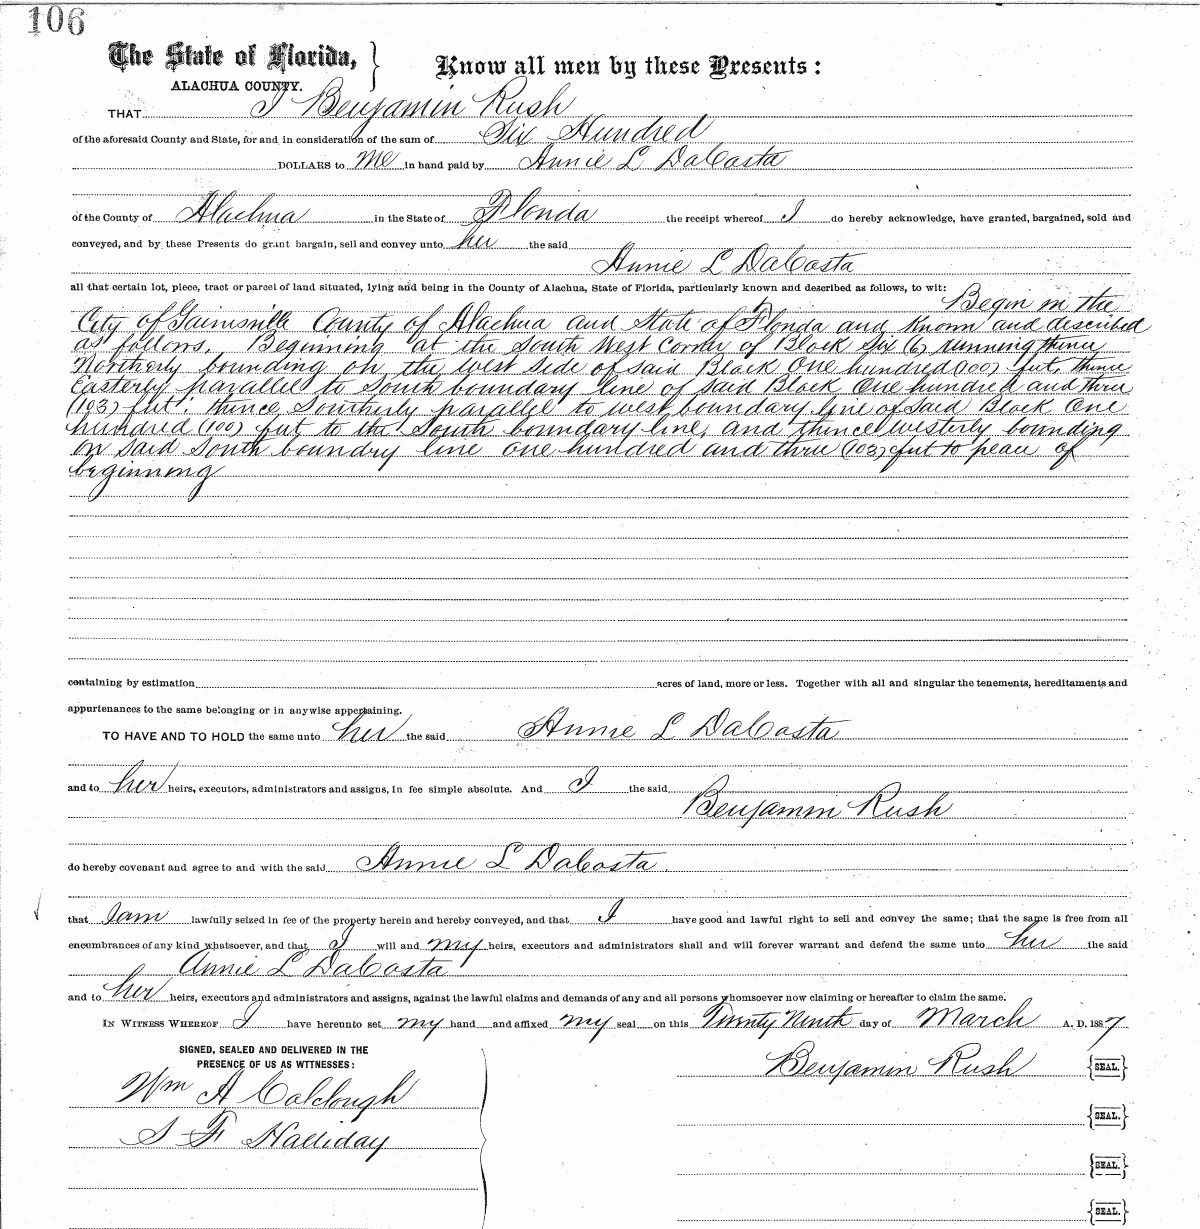 106
The State of Florida, } Know all men by these Presents :
ALACHUA COUNTY.
THAT I Benjamin Rush
of the aforesaid County and State, for and in consideration of the sum of Six Hundred
DOLLARS to me in hand paid by Annie L DaCosta
of the County of Alachua in the State of Florida the receipt whereof I do hereby acknowledge, have granted, bargained, sold and
conveyed, and by these Presents do grant bargain, sell and convey unto her the said
Annie L DaCosta
all that certain lot, piece, tract or parcel of land situated, lying and being in the County of Alachua, State of Florida, particularly known and described as follows, to wit: Begin in the
City of Gainsville County of Alachua and State of Florida and Known and discribed
as follows. Beginning at the South West Corner of Block Six (6) running thence
Northerly bounding on the west side of said Block One hundred (100) feet, thence
Easterly parallel to South boundary line of said Block One hundred and three
(103) feet: thence Southerly parallel to west boundary line of said Block One
hundred (100) feet to the South boundary line, and thence westerly bounding
on said South boundry line one hundred and three (103) feet to peace of
beginning
containing by estimation acres of land, more or less. Together with all and singular the tenements, hereditaments and
appurtenances to the same belonging or in anywise appertaining.
TO HAVE AND TO HOLD the same unto her the said Annie L DaCosta
and to her heirs, executors, administrators and assigns, in fee simple absolute. And I the said
Benjamin Rush
do hereby covenant and agree to and with the said Annie L DaCosta.
that I am lawfully seized in fee of the property herein and hereby conveyed, and that I have good and lawful right to sell and convey the same; that the same is free from all
encumbrances of any kind whatsoever, and that I will and my heirs, executors and administrators shall and will forever warrant and defend the same unto her the said
Annie L DaCosta
and to her heirs, executors and administrators and assigns, against the lawful claims and demands of any and all persons whomsoever now claiming or hereafter to claim the same.
IN WITNESS WHEREOF I have hereunto set my hand and affixed my seal on this Twenty Ninth day of March A. D. 1887
SIGNED, SEALED AND DELIVERED IN THE
PRESENCE OF US AS WITNESSES:
Benjamin Rush {SEAL.}
Wm A Colclough
{SEAL.}
S F Halliday
{SEAL.}
{SEAL.}